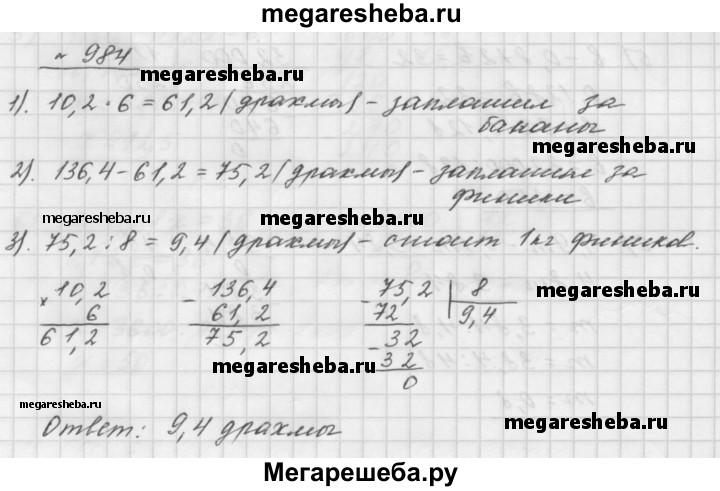 megaresheba.ru
№ 984
megaresheba.ru
1). 10,2 · 6 = 61,2 (драхмы) – заплатил за
бананы
megaresheba.ru
2). 136,4 – 61,2 = 75,2 (драхмы) – заплатил за
финики
megaresheba.ru
megaresheba.ru
3). 75,2 : 8 = 9,4 (драхмы) – стоит 1 кг фиников.
× 10,2
6
61,2
– 136,4
61,2
75,2
– 75,2 | 8
72 9,4
– 32
32
0
megaresheba.ru
megaresheba.ru
megaresheba.ru
megaresheba.ru
Ответ: 9,4 драхмы
Мегарешеба.ру